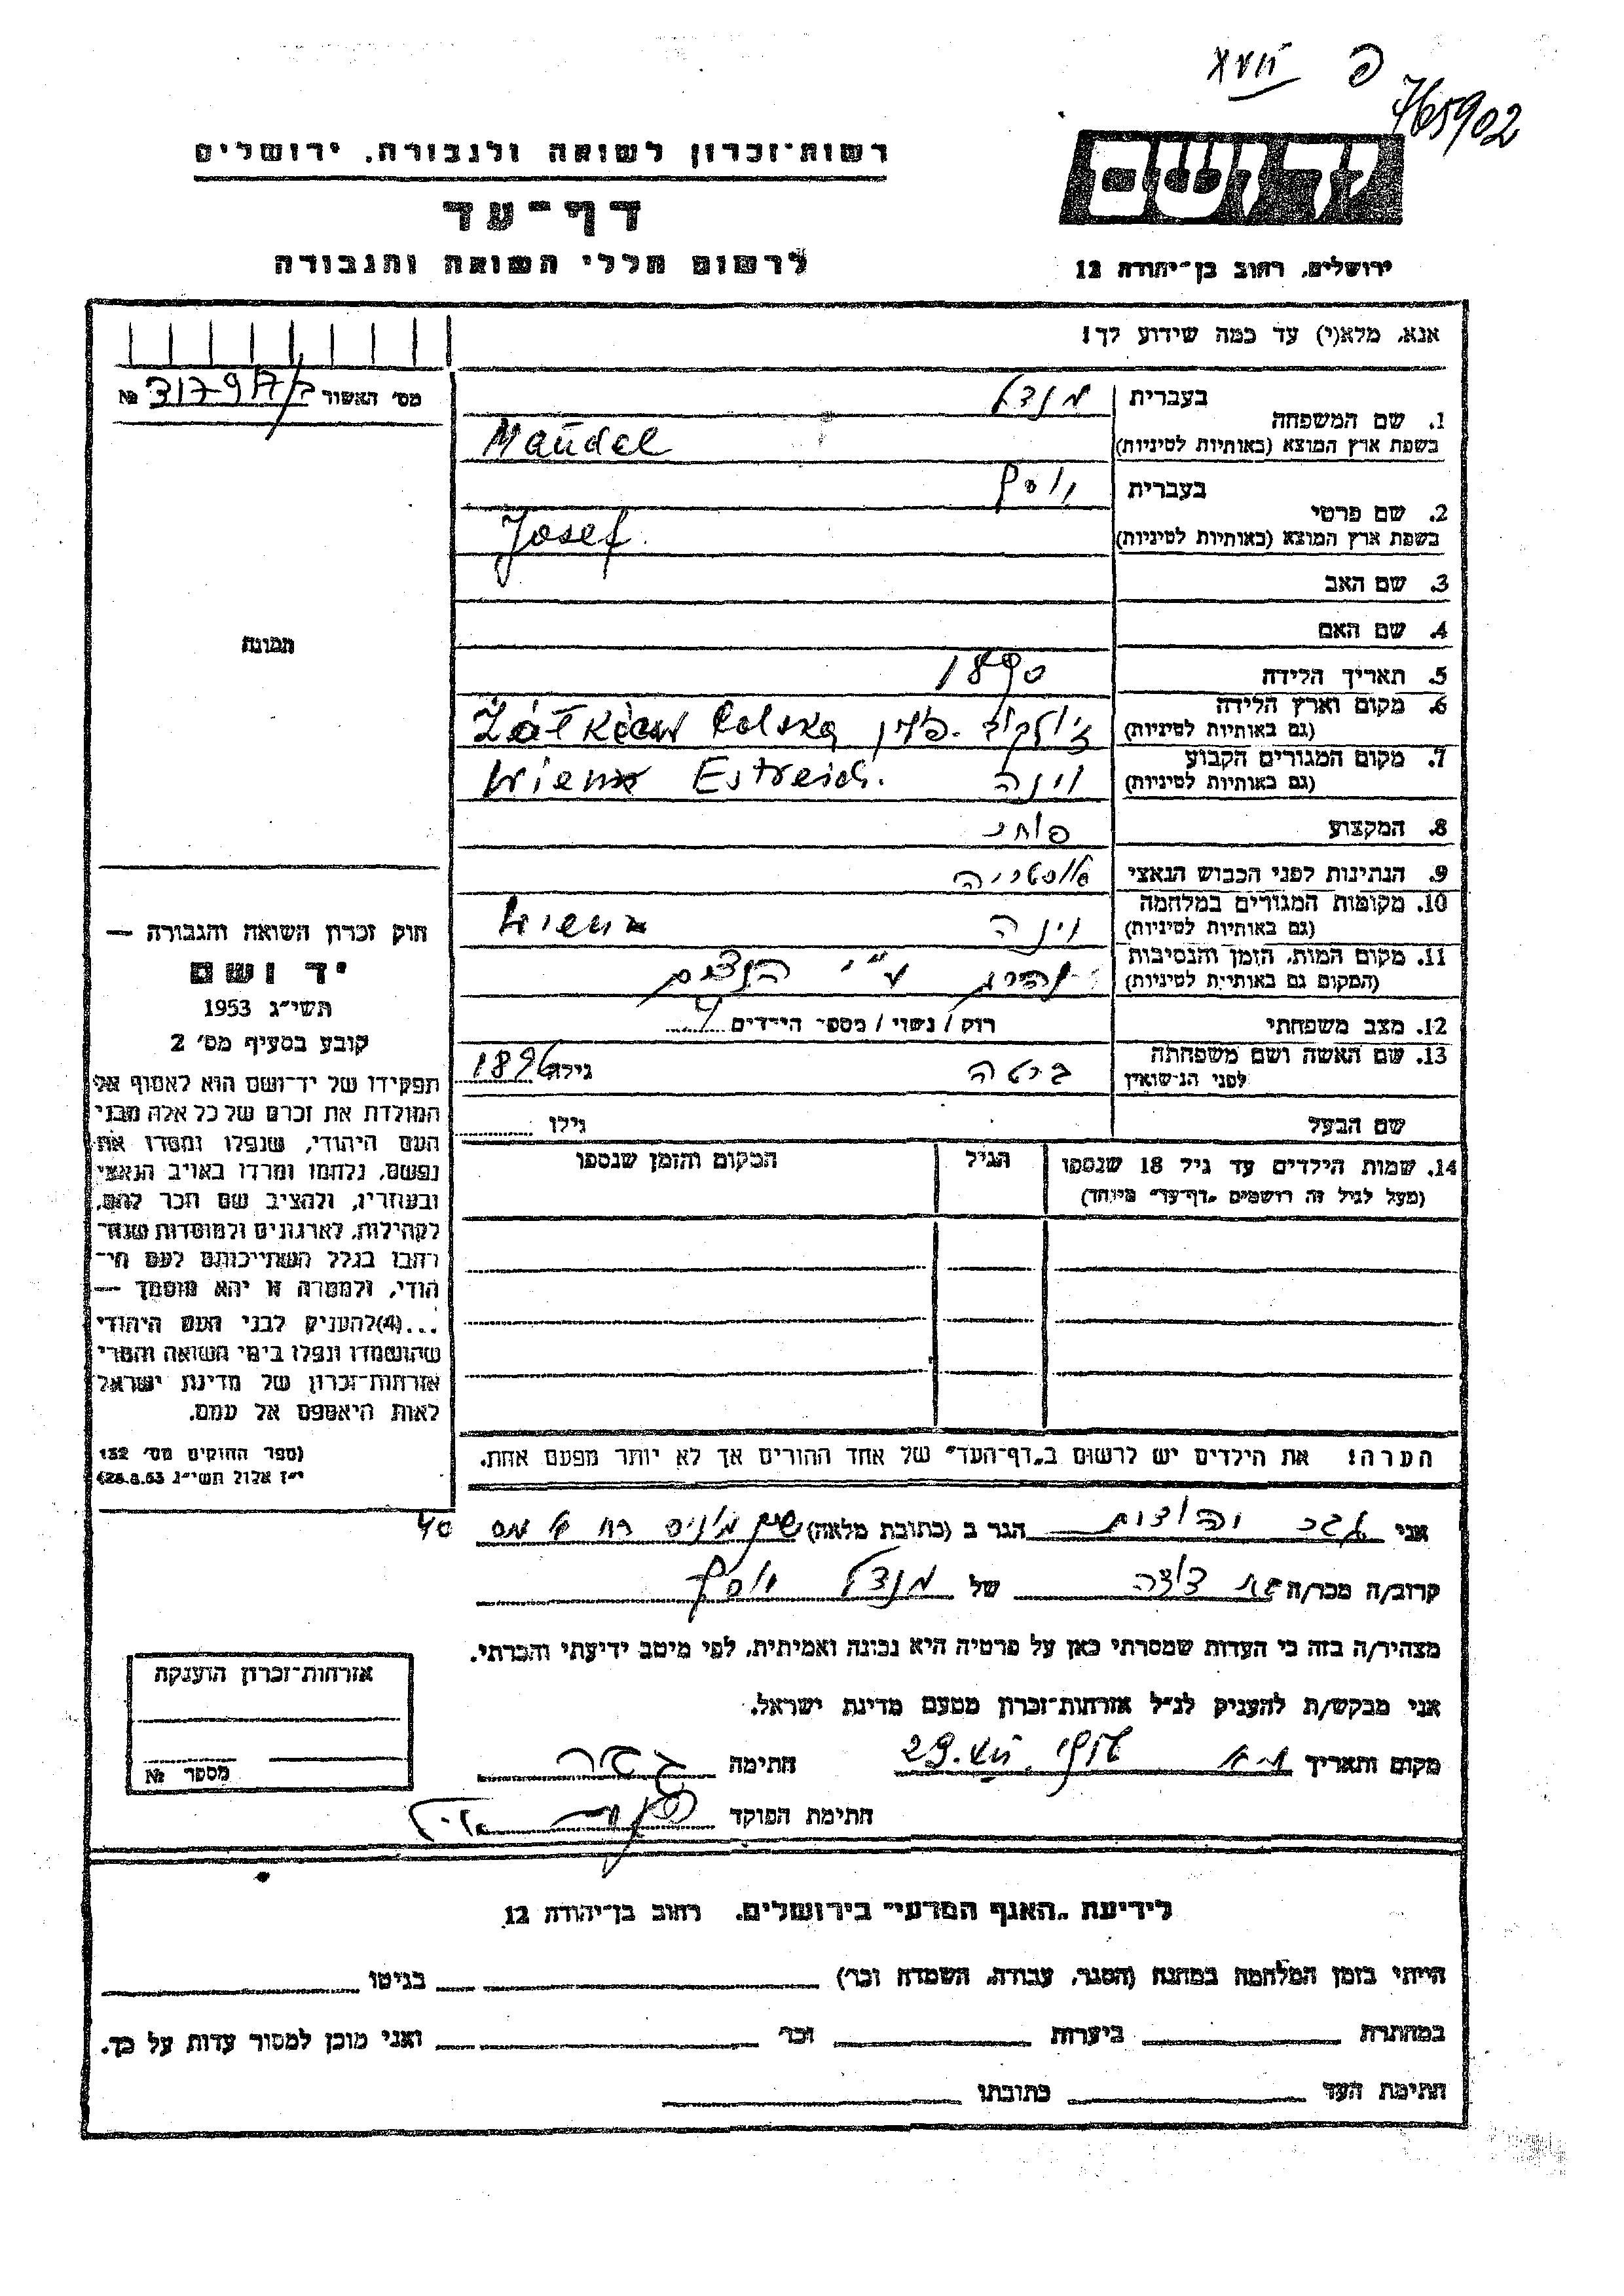 765902
רשות־זכרון לשואה ולגבורה. ירושלים
דף־עד
לרשום חללי השואה והגבורה
ידושם
ירושלים, רחוב בן־יהודה 12
אנא, מלא(י) עד כמה שידוע לך!
מס׳ האשור №
1. שם המשפחה
בעברית מנדל
בשפת ארץ המוצא (באותיות לטיניות) Mandel
2. שם פרטי
בעברית יוסף
בשפת ארץ המוצא (באותיות לטיניות) Josef.
3. שם האב
4. שם האם
תמונה
5. תאריך הלידה 1890
6. מקום וארץ הלידה
(גם באותיות לטיניות) Polska פולין
7. מקום המגורים הקבוע
(גם באותיות לטיניות) וינה Estreich.
8. המקצוע
9. הנתינות לפני הכבוש הנאצי
10. מקומות המגורים במלחמה
(גם באותיות לטיניות) וינה
11. מקום המות, הזמן והנסיבות
(המקום גם באותיות לטיניות) נהרג ע״י הנצים
12. מצב משפחתי רוק / נשוי / מספר הילדים
13. שם האשה ושם משפחתה
לפני הנישואין ברטה גילה 1896
שם הבעל גילו
14. שמות הילדים עד גיל 18 שנספו הגיל המקום והזמן שנספו
(מעל לגיל זה רושמים „דף־עד״ מיוחד)
הערה: את הילדים יש לרשום ב„דף־העד״ של אחד ההורים אך לא יותר מפעם אחת.
חוק זכרון השואה והגבורה —
יד ושם
תשי״ג 1953
קובע בסעיף מס׳ 2
תפקידו של יד־ושם הוא לאסוף אל
המולדת את זכרם של כל אלה מבני
העם היהודי, שנפלו ומסרו את
נפשם, נלחמו ומרדו באויב הנאצי
ובעוזריו, ולהציב שם וזכר להם,
לקהילות, לארגונים ולמוסדות שנח־
רבו בגלל השתייכותם לעם הי־
הודי, ולמטרה זו יהא מוסמך —
...(4)להעניק לבני העם היהודי
שהושמדו ונפלו בימי השואה והמרי
אזרחות־זכרון של מדינת ישראל
לאות היאספם אל עמם.
(ספר החוקים מס׳ 132
י״ז אלול תשי״ג 28.8.53)
אני הגר ב (כתובת מלאה) 40
קרוב/ה מכר/ה של מנדל יוסף
מצהיר/ה בזה כי העדות שמסרתי כאן על פרטיה היא נכונה ואמיתית, לפי מיטב ידיעתי והכרתי.
אני מבקש/ת להעניק לנ״ל אזרחות־זכרון מטעם מדינת ישראל.
מקום ותאריך חתימה
חתימת הפוקד
אזרחות־זכרון הוענקה
מספר №
לידיעת „האגף המדעי״ בירושלים. רחוב בן־יהודה 12
הייתי בזמן המלחמה במחנה (הסגר, עבודה, השמדה וכו׳) בגיטו
במחתרת ביערות וכו׳ ואני מוכן למסור עדות על כך.
חתימת העד כתובתו